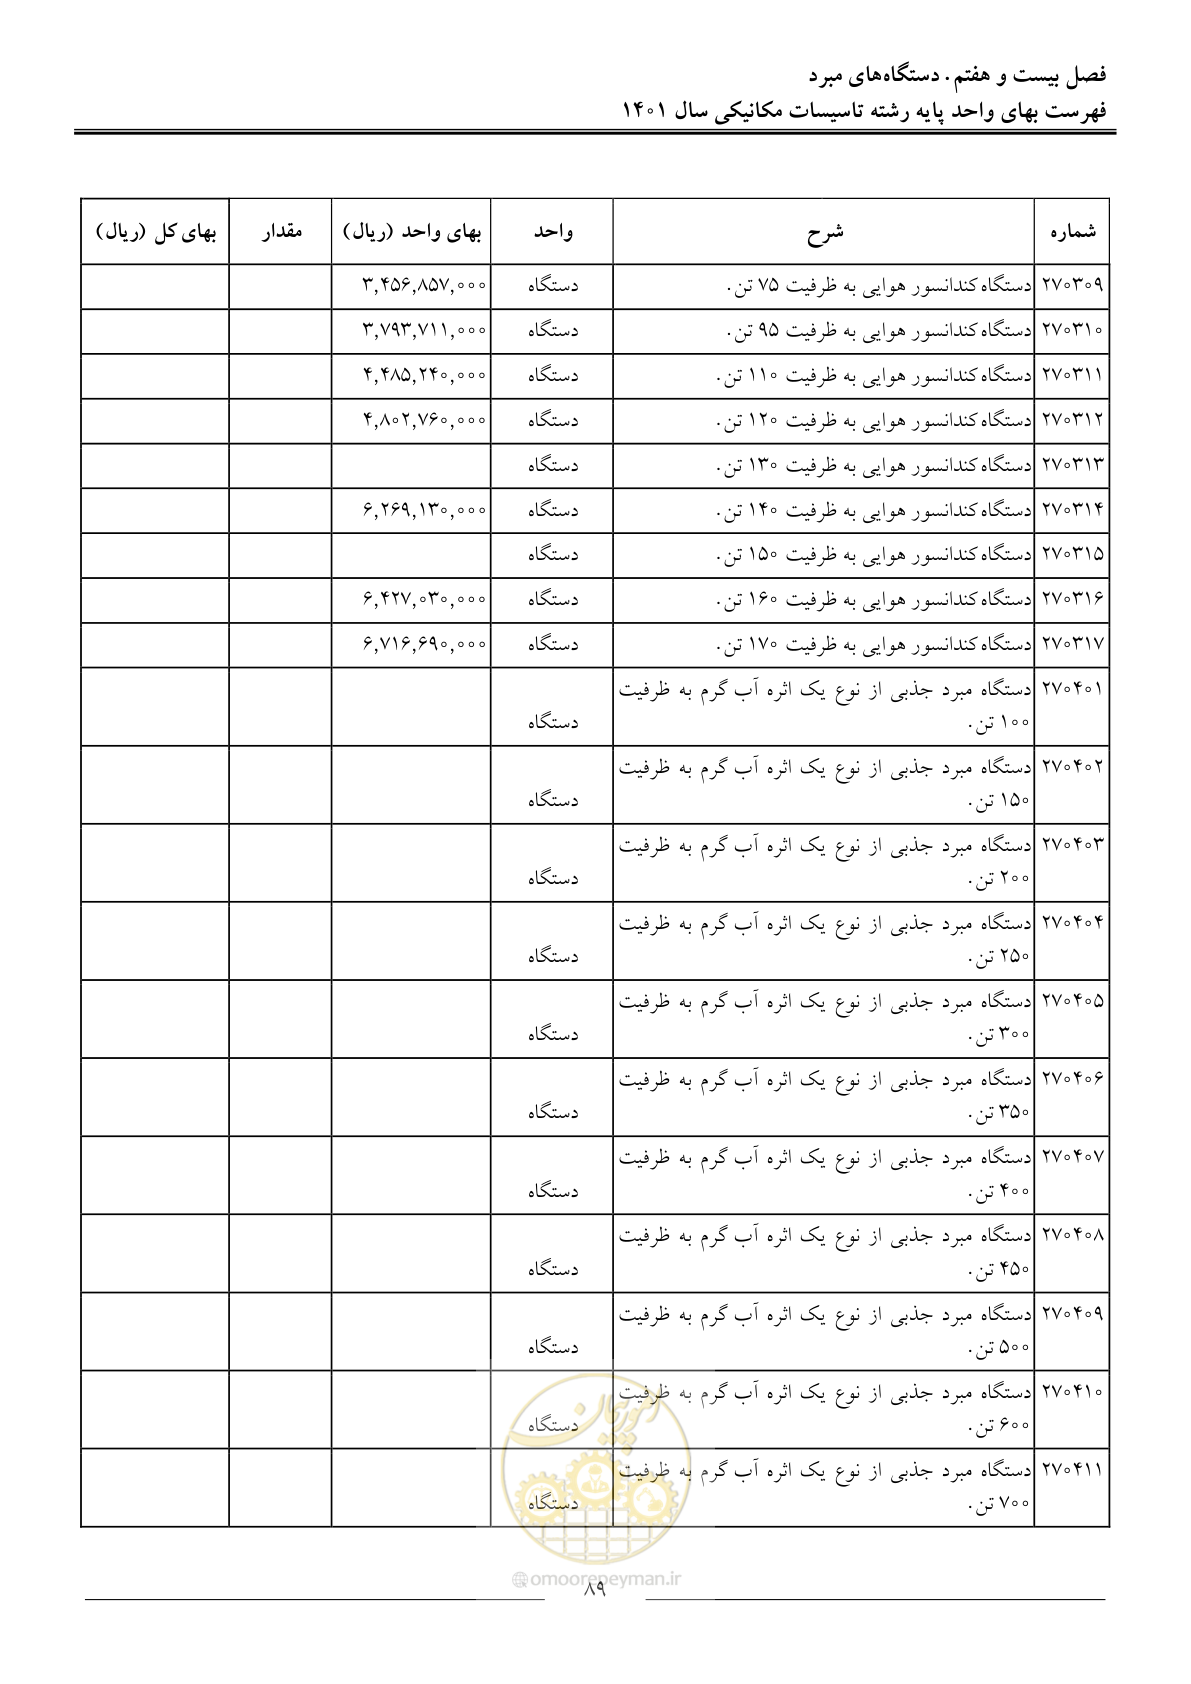 فصل بیست و هفتم. دستگاه‌های مبرد
فهرست بهای واحد پایه رشته تاسیسات مکانیکی سال ۱۴۰۱
شماره شرح واحد بهای واحد (ریال) مقدار بهای کل (ریال)
۲۷۰۳۰۹ دستگاه کندانسور هوایی به ظرفیت ۷۵ تن. دستگاه ۳,۴۵۶,۸۵۷,۰۰۰
۲۷۰۳۱۰ دستگاه کندانسور هوایی به ظرفیت ۹۵ تن. دستگاه ۳,۷۹۳,۷۱۱,۰۰۰
۲۷۰۳۱۱ دستگاه کندانسور هوایی به ظرفیت ۱۱۰ تن. دستگاه ۴,۴۸۵,۲۴۰,۰۰۰
۲۷۰۳۱۲ دستگاه کندانسور هوایی به ظرفیت ۱۲۰ تن. دستگاه ۴,۸۰۲,۷۶۰,۰۰۰
۲۷۰۳۱۳ دستگاه کندانسور هوایی به ظرفیت ۱۳۰ تن. دستگاه
۲۷۰۳۱۴ دستگاه کندانسور هوایی به ظرفیت ۱۴۰ تن. دستگاه ۶,۲۶۹,۱۳۰,۰۰۰
۲۷۰۳۱۵ دستگاه کندانسور هوایی به ظرفیت ۱۵۰ تن. دستگاه
۲۷۰۳۱۶ دستگاه کندانسور هوایی به ظرفیت ۱۶۰ تن. دستگاه ۶,۴۲۷,۰۳۰,۰۰۰
۲۷۰۳۱۷ دستگاه کندانسور هوایی به ظرفیت ۱۷۰ تن. دستگاه ۶,۷۱۶,۶۹۰,۰۰۰
۲۷۰۴۰۱ دستگاه مبرد جذبی از نوع یک اثره آب گرم به ظرفیت
۱۰۰ تن. دستگاه
۲۷۰۴۰۲ دستگاه مبرد جذبی از نوع یک اثره آب گرم به ظرفیت
۱۵۰ تن. دستگاه
۲۷۰۴۰۳ دستگاه مبرد جذبی از نوع یک اثره آب گرم به ظرفیت
۲۰۰ تن. دستگاه
۲۷۰۴۰۴ دستگاه مبرد جذبی از نوع یک اثره آب گرم به ظرفیت
۲۵۰ تن. دستگاه
۲۷۰۴۰۵ دستگاه مبرد جذبی از نوع یک اثره آب گرم به ظرفیت
۳۰۰ تن. دستگاه
۲۷۰۴۰۶ دستگاه مبرد جذبی از نوع یک اثره آب گرم به ظرفیت
۳۵۰ تن. دستگاه
۲۷۰۴۰۷ دستگاه مبرد جذبی از نوع یک اثره آب گرم به ظرفیت
۴۰۰ تن. دستگاه
۲۷۰۴۰۸ دستگاه مبرد جذبی از نوع یک اثره آب گرم به ظرفیت
۴۵۰ تن. دستگاه
۲۷۰۴۰۹ دستگاه مبرد جذبی از نوع یک اثره آب گرم به ظرفیت
۵۰۰ تن. دستگاه
۲۷۰۴۱۰ دستگاه مبرد جذبی از نوع یک اثره آب گرم به ظرفیت
۶۰۰ تن. دستگاه
۲۷۰۴۱۱ دستگاه مبرد جذبی از نوع یک اثره آب گرم به ظرفیت
۷۰۰ تن. دستگاه
امور پیمان
omoorepeyman.ir
۸۹